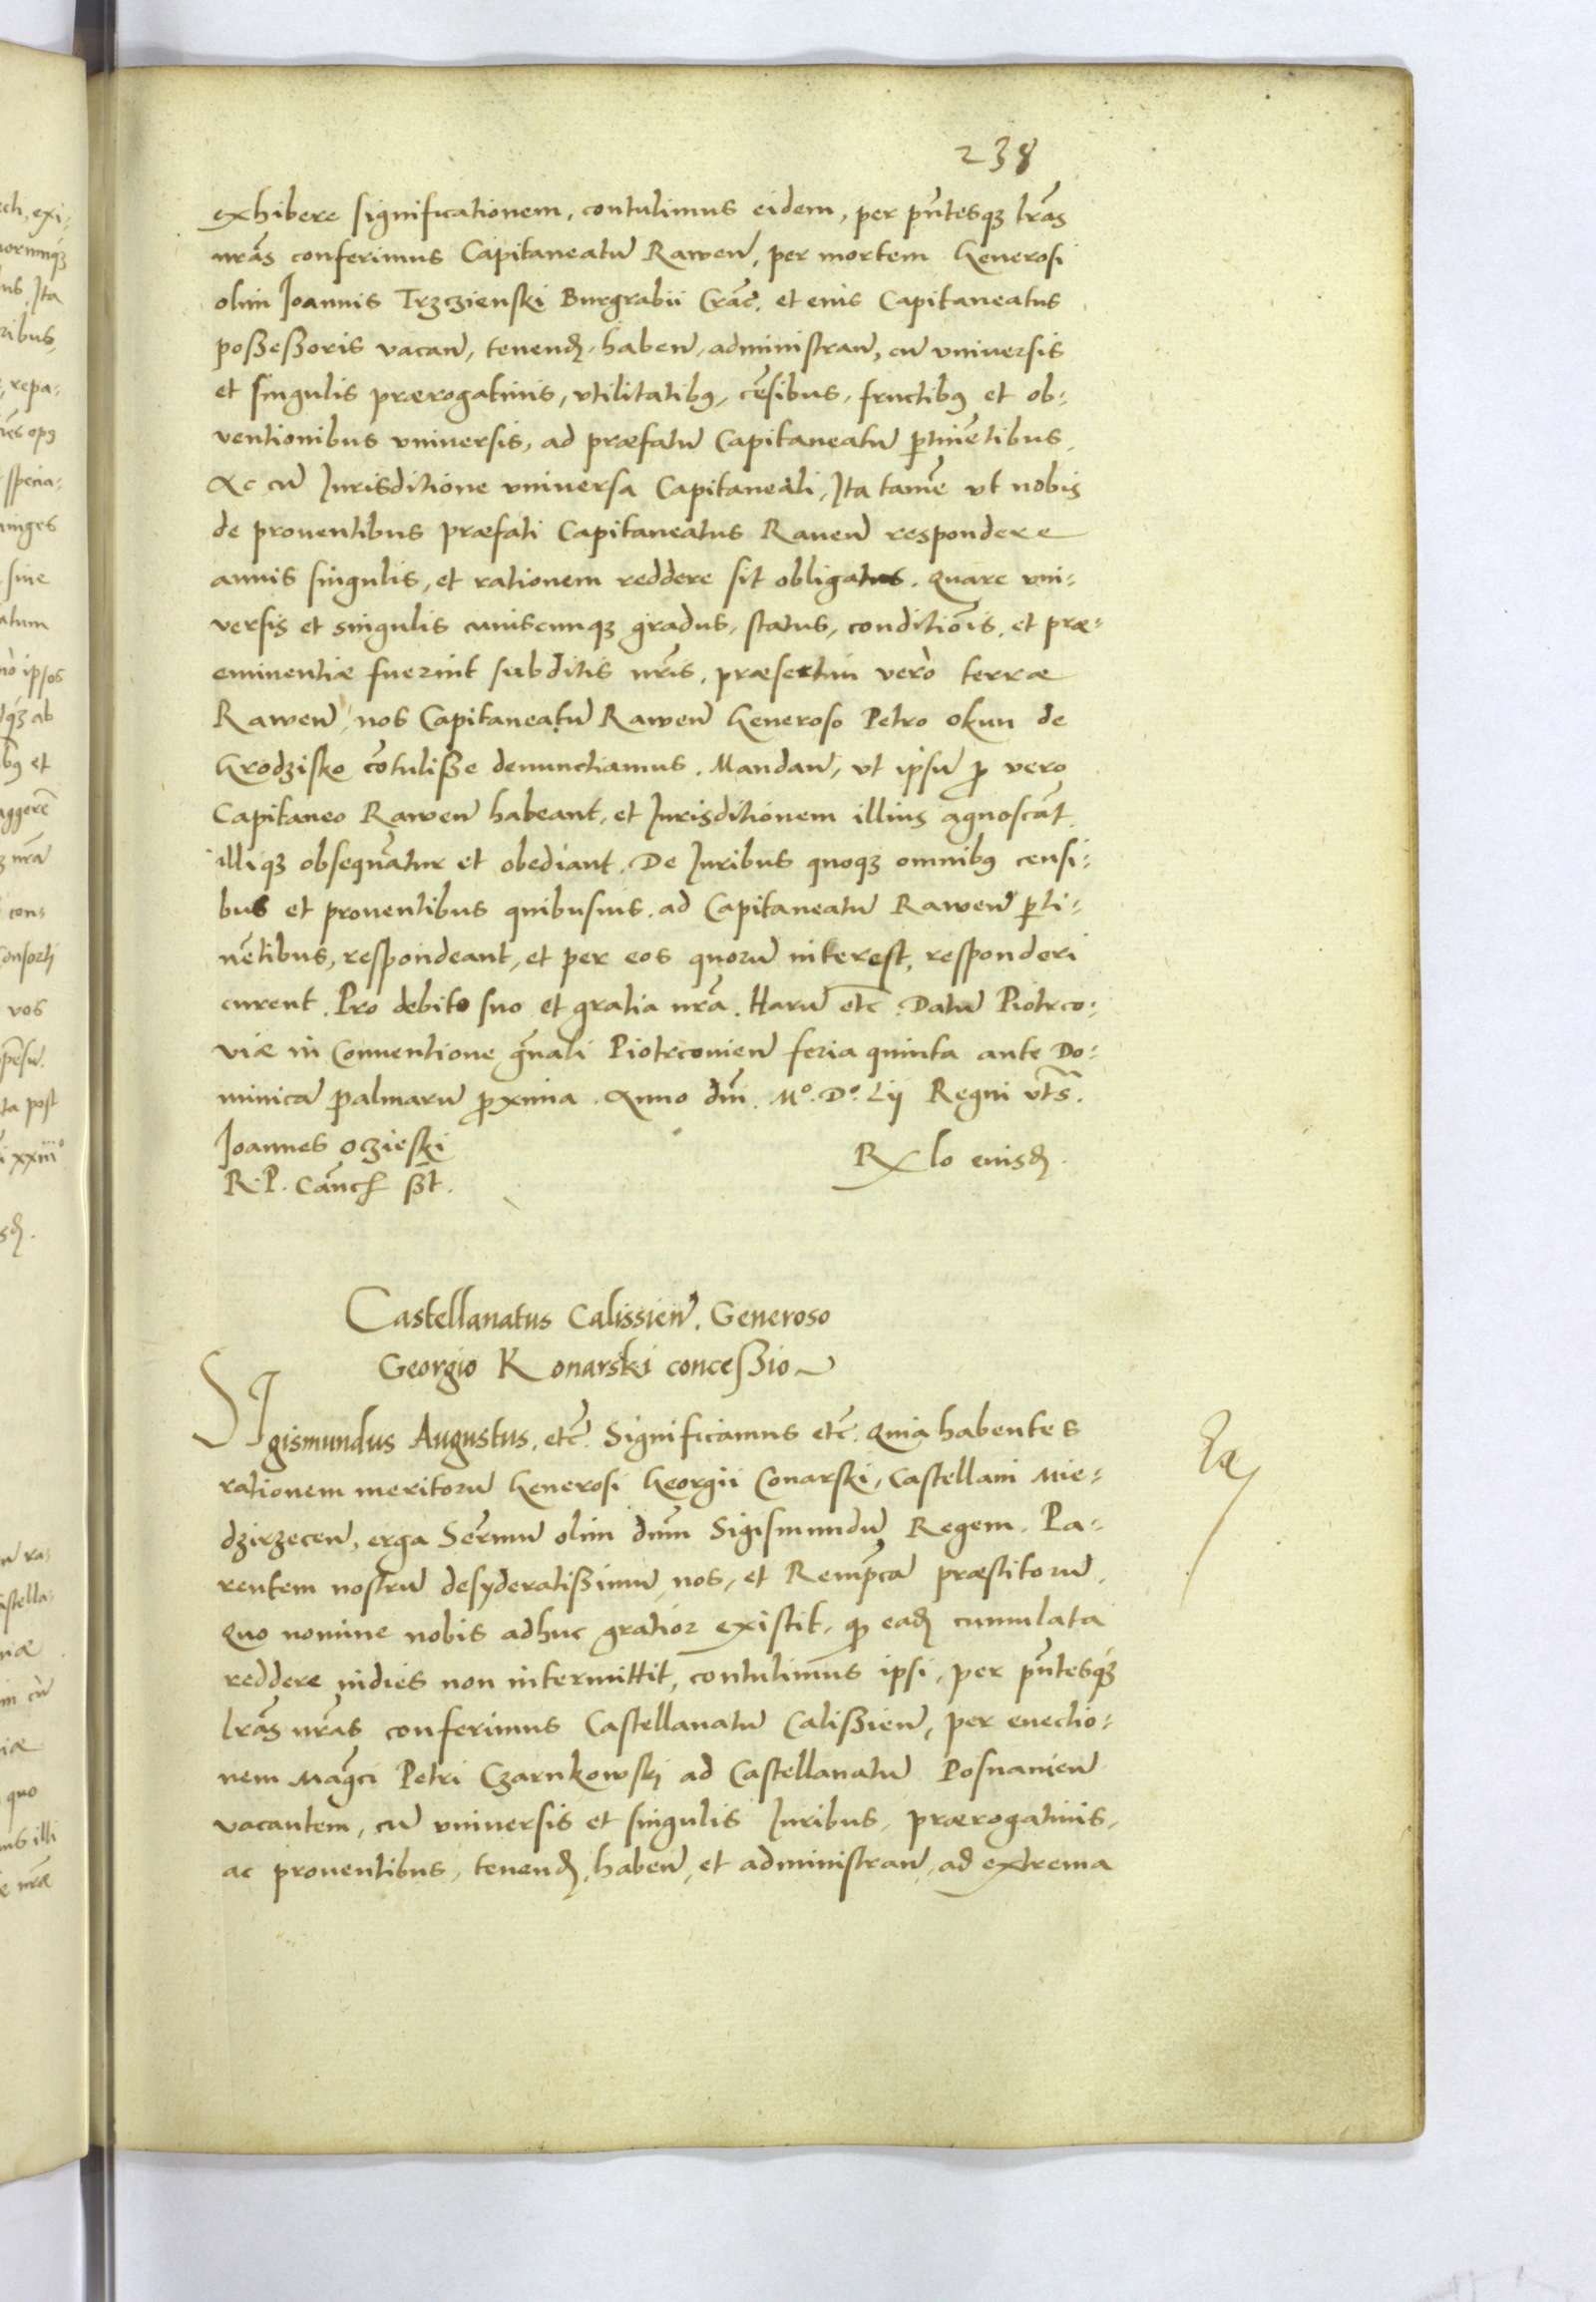 238
exhibere significationem, contulimus eidem, per pñtesq₃ lrãs
nrãs conferimus Capitaneatũ Rawen̄, per mortem Generosi
olim Joannis Trzczienski Burgrabii Crãc. et eius Capitaneatus
poßeßoris vacan̄, tenend̨, haben̄, administran̄, cũ vniuersis
et singulis prærogatiuis, vtilitatib₉, cẽsibus, fructib₉ et ob-
ventionibus vniuersis, ad præfatũ Capitaneatũ ꝑtinẽtibus,
Ac cũ Jurisditione vniuersa Capitaneali, Ita tamẽ vt nobis
de prouentibus præfati Capitaneatus Rauen̄ respondere
annis singulis, et rationem reddere sit obligatus. Quare vni-
versis et singulis cuiuscunq₃ gradus, status, conditiõis, et præ-
eminentiæ fuerint subditis nrĩs, præsertim verò terræ
Rawen̄, nos Capitaneatũ Rawen̄ Generoso Petro Okun de
Grodzisko cõtuliße denunctiamus. Mandan̄, vt ipsũ ꝓ vero
Capitaneo Rawen̄ habeant, et Jurisditionem illius agnoscãt,
illiq₃ obsequãtur et obediant. De Juribus quoq₃ omnib₉ censi-
bus et prouentibus quibusuis, ad Capitaneatũ Rawen̄ ꝑti-
nẽtibus, respondeant, et per eos quorũ interest, responderi
curent. Pro debito suo et gratia nrã. Harũ etc̄. Datũ Piotrco-
viæ in Conuentione gñali Piotrcouien̄ feria quinta ante Do-
minicã palmarũ ꝓxima. Anno dñi. Mº. Dº. Lij Regni vts̄.
Joannes Oczieski
R. P. Canc̄ł ßt̄.
Rło eiusd̨.
Castellanatus Calissien̄. Generoso
Georgio Konarski conceßio
SIgismundus Augustus, etc̄. Significamus etc̄. Quia habentes
rationem meritorũ Generosi Georgii Conarski, Castellani Mie-
dzirzecen̄, erga Serm̃ũ olim dnm̃ Sigismundũ Regem, Pa-
rentem nostrũ desyderatißimũ, nos, et Remp̃cã præstitorũ,
Quo nomine nobis adhuc gratior existit, qꝫ ead̨ cumulata
reddere indies non intermittit, contulimus ipsi, per pñtesq₃
lrãs nrãs conferimus Castellanatũ Calißien̄, per euectio-
nem Mag̃ci Petri Czarnkowski ad Castellanatũ Posnanien̄
vacantem, cũ vniuersis et singulis Juribus, prærogatiuis,
ac prouentibus, tenend̨, haben̄, et administran̄, ad extrema